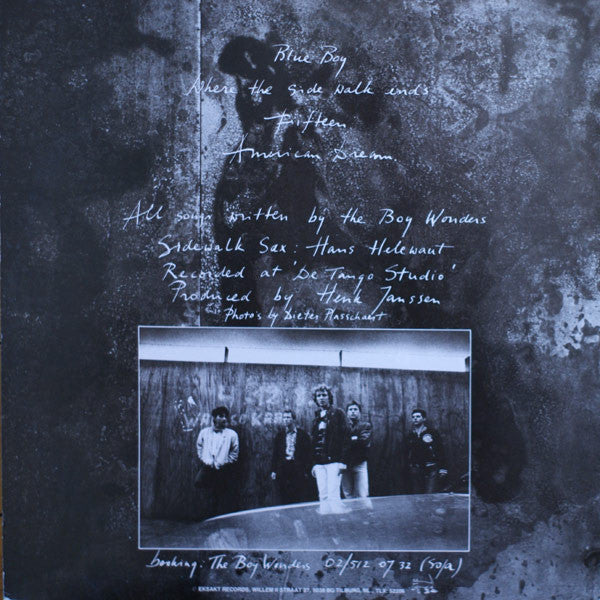 Blue Boy
Where the side walk ends
Fifteen
American Dream.
All songs written by the Boy Wonders
Sidewalk Sax: Hans Helewaut
Recorded at 'De Tango Studio'
Produced by Henk Janssen
Photo's by Dieter Plasschaert
booking: The Boy Wonders 02/512 07 32
EKSAKT RECORDS, WILLEM II STRAAT 37, 5038 BG TILBURG, TLX 52206